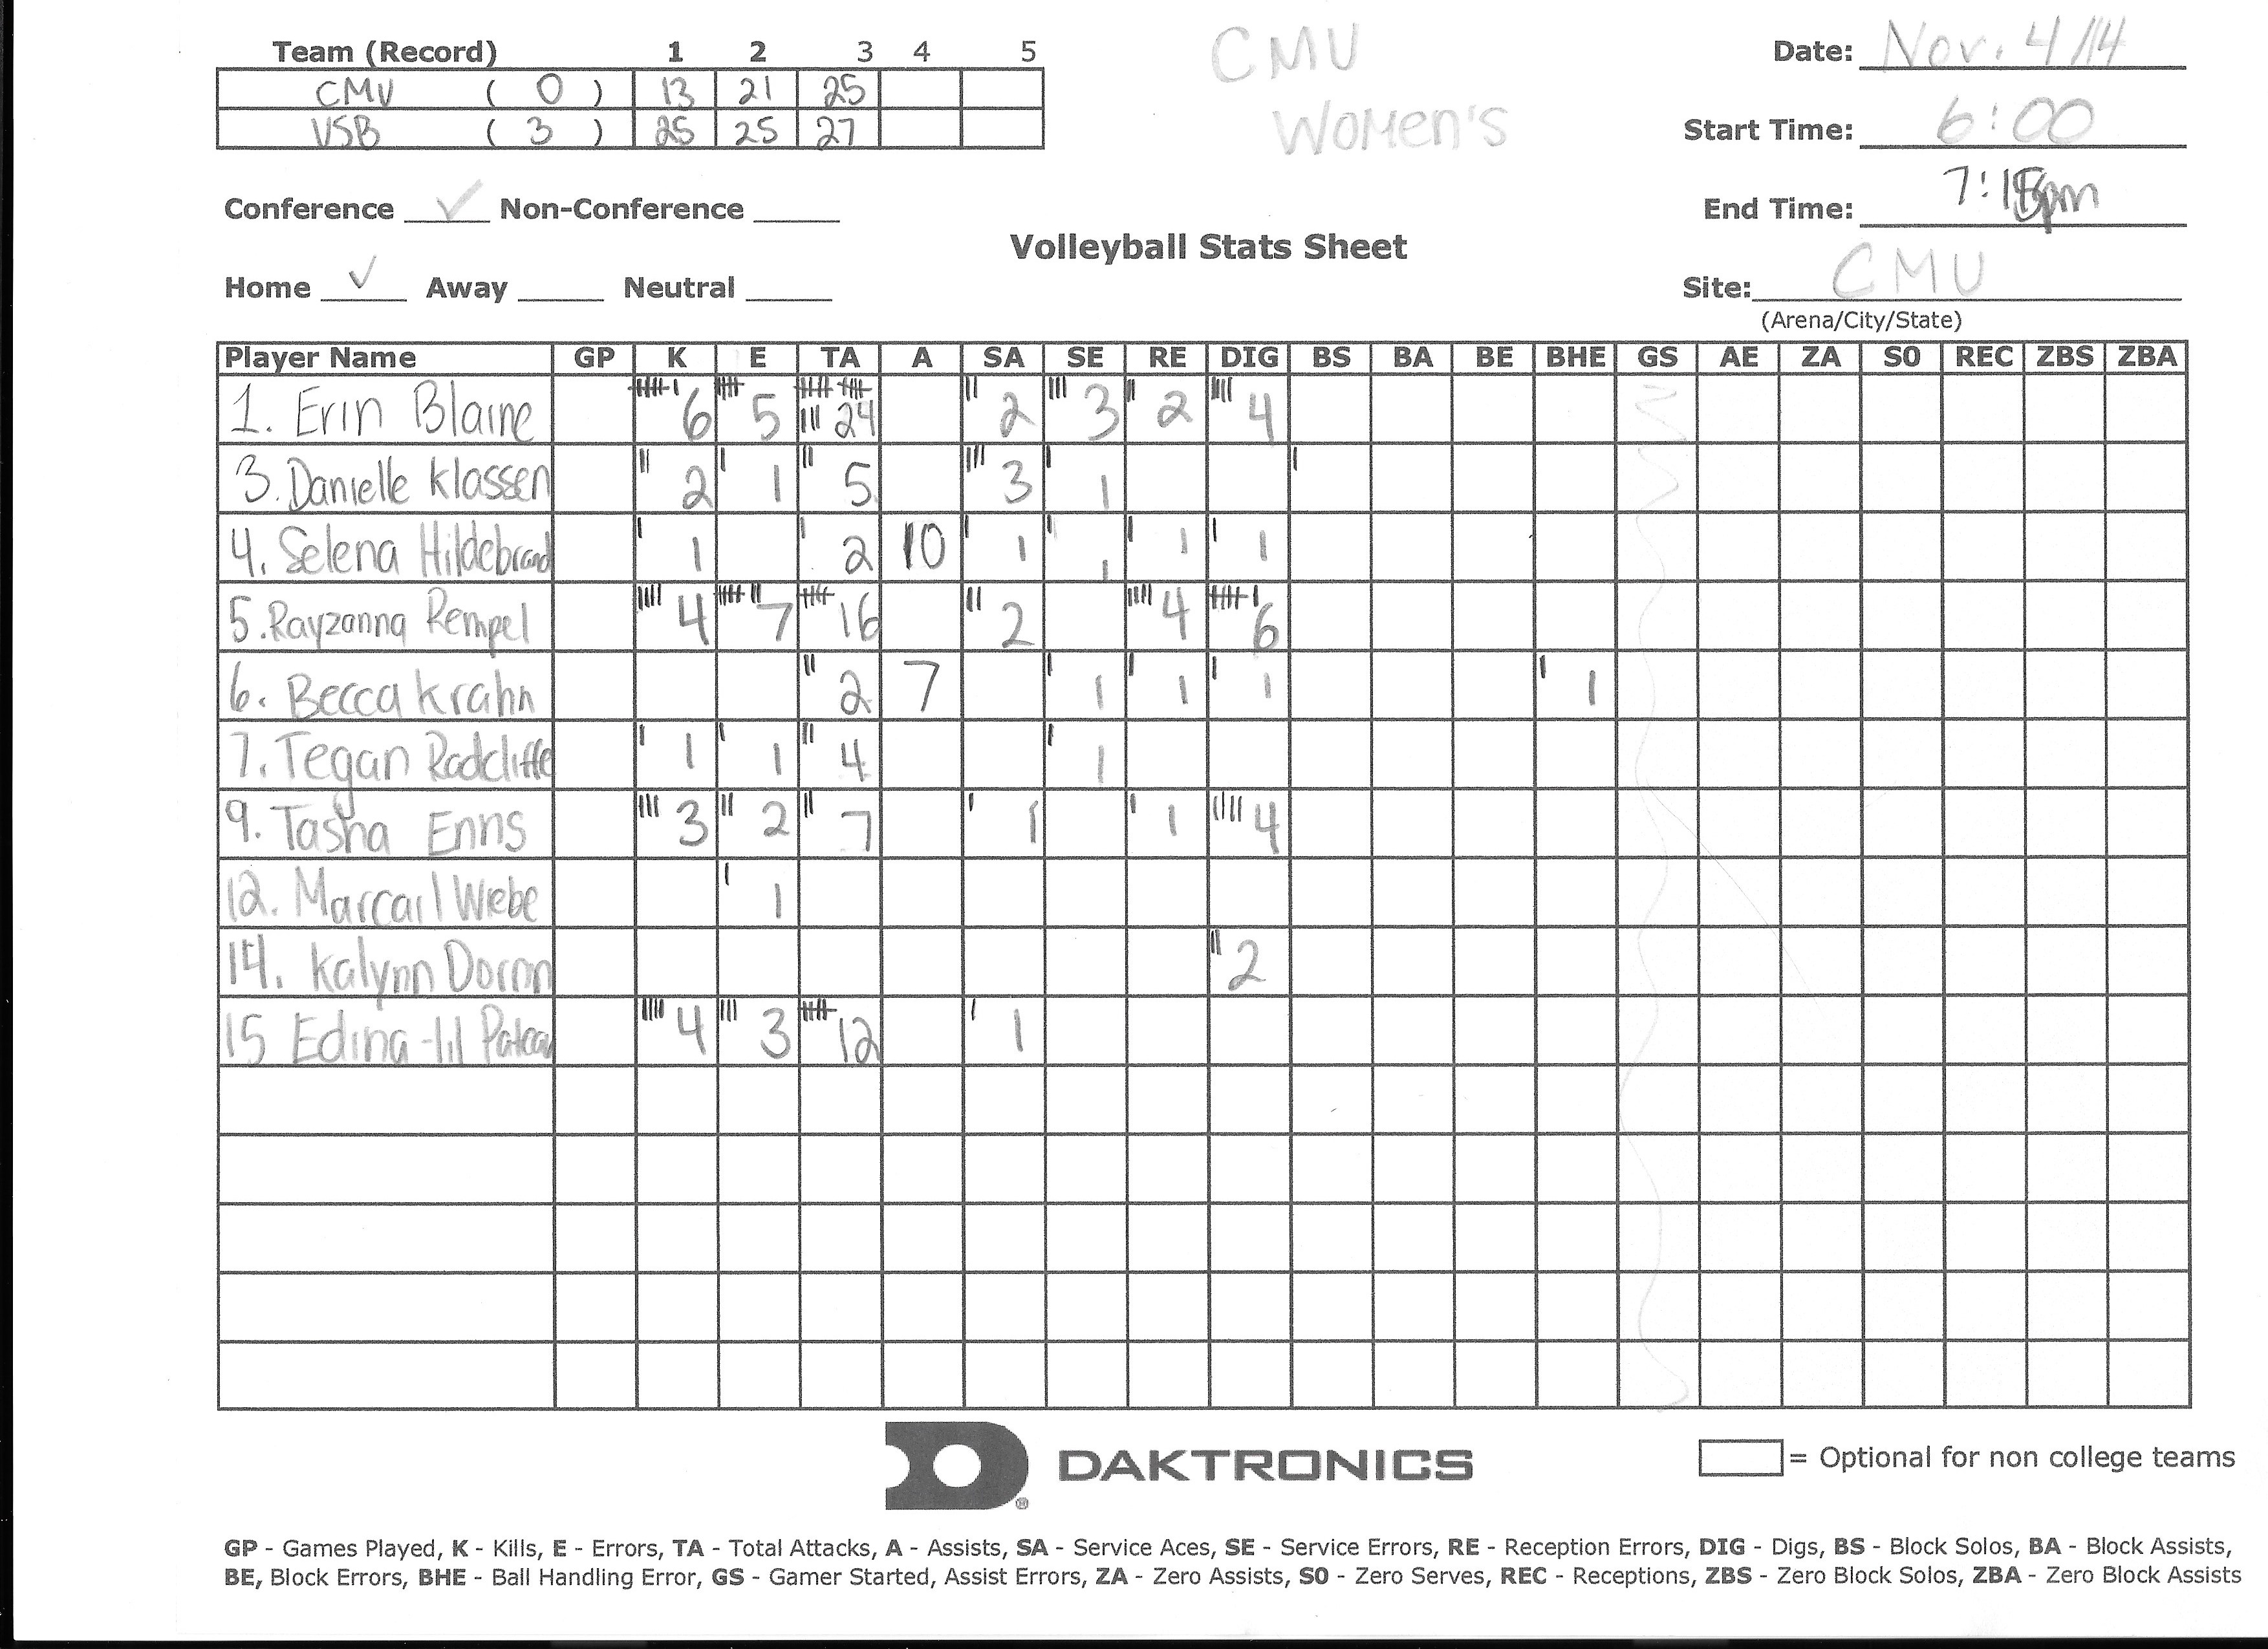 Team (Record) 1 2 3 4 5
CMU ( 0 ) 13 21 25
VSB ( 3 ) 25 25 27
CMU
Women's
Date: Nov. 4/14
Start Time: 6:00
End Time: 7:15pm
Conference ✓ Non-Conference
Volleyball Stats Sheet
Home ✓ Away Neutral
Site: CMU
(Arena/City/State)
Player Name GP K E TA A SA SE RE DIG BS BA BE BHE GS AE ZA SO REC ZBS ZBA
1. Erin Blaine 6 5 24 2 3 2 4
3. Danielle Klassen 2 1 5 3 1
4. Selena Hildebrand 1 2 10 1 1 1 1
5. Rayzanna Rempel 4 7 16 2 4 6
6. Becca Krahn 2 7 1 1 1 1
7. Tegan Radcliffe 1 1 4 1
9. Tasha Enns 3 2 7 1 1 4
12. Wiebe 1
14. Kalynn 2
15 Edina-lil 4 3 12 1
DAKTRONICS
= Optional for non college teams
GP - Games Played, K - Kills, E - Errors, TA - Total Attacks, A - Assists, SA - Service Aces, SE - Service Errors, RE - Reception Errors, DIG - Digs, BS - Block Solos, BA - Block Assists,
BE, Block Errors, BHE - Ball Handling Error, GS - Gamer Started, Assist Errors, ZA - Zero Assists, SO - Zero Serves, REC - Receptions, ZBS - Zero Block Solos, ZBA - Zero Block Assists